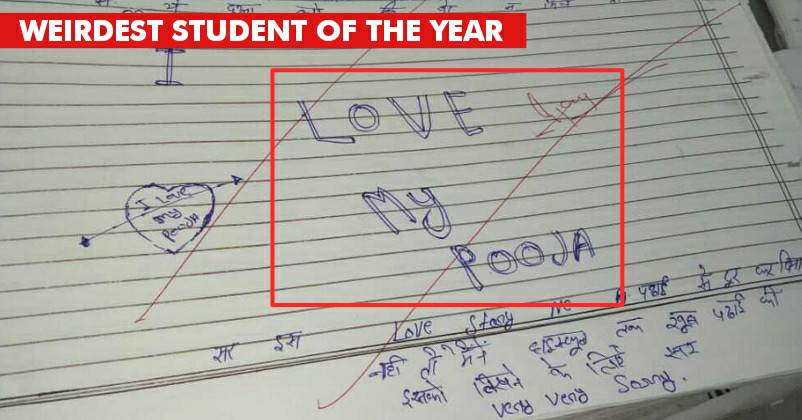 WEIRDEST STUDENT OF THE YEAR
I
LOVE
My
POOJA
I Love
my
POOJA
सर इस Love Story ne पढाई से दूर कर दिया
नही तो मैंने हाईस्कूल तक खूब पढाई की
इसको लिखने के लिये सर
very very Sorry.